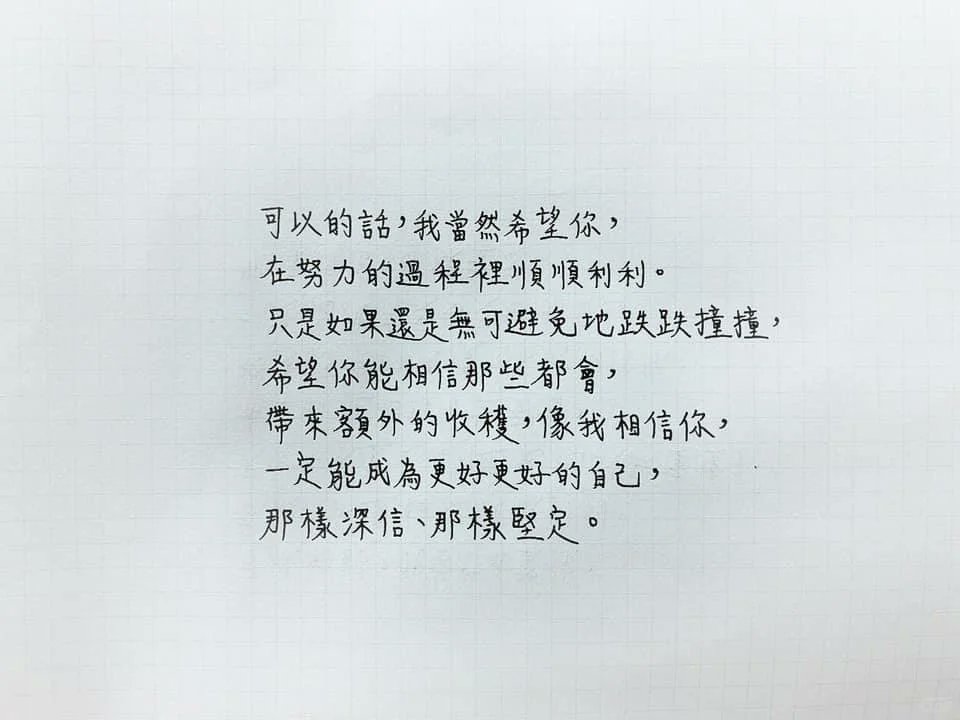 可以的話，我當然希望你，
在努力的過程裡順順利利。
只是如果還是無可避免地跌跌撞撞，
希望你能相信那些都會，
帶來額外的收穫，像我相信你，
一定能成為更好更好的自己，
那樣深信、那樣堅定。